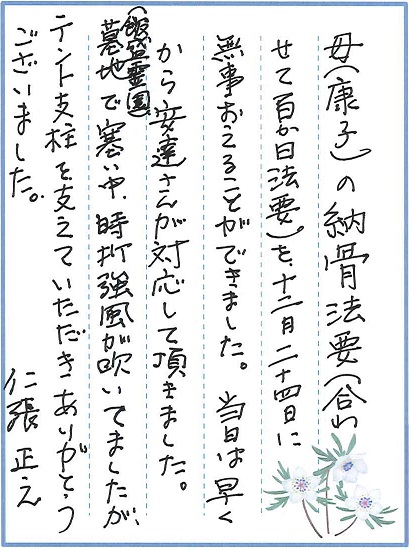 母(康子)の納骨法要(合わ
せて百か日法要)を、十二月二十四日に
無事おえることができました。当日は早く
から安達さんが対応して頂きました。
(飯盛霊園)
墓地で寒い中、時折強風が吹いてましたが、
テント支柱を支えていただきありがとう
ございました。
仁張 正之